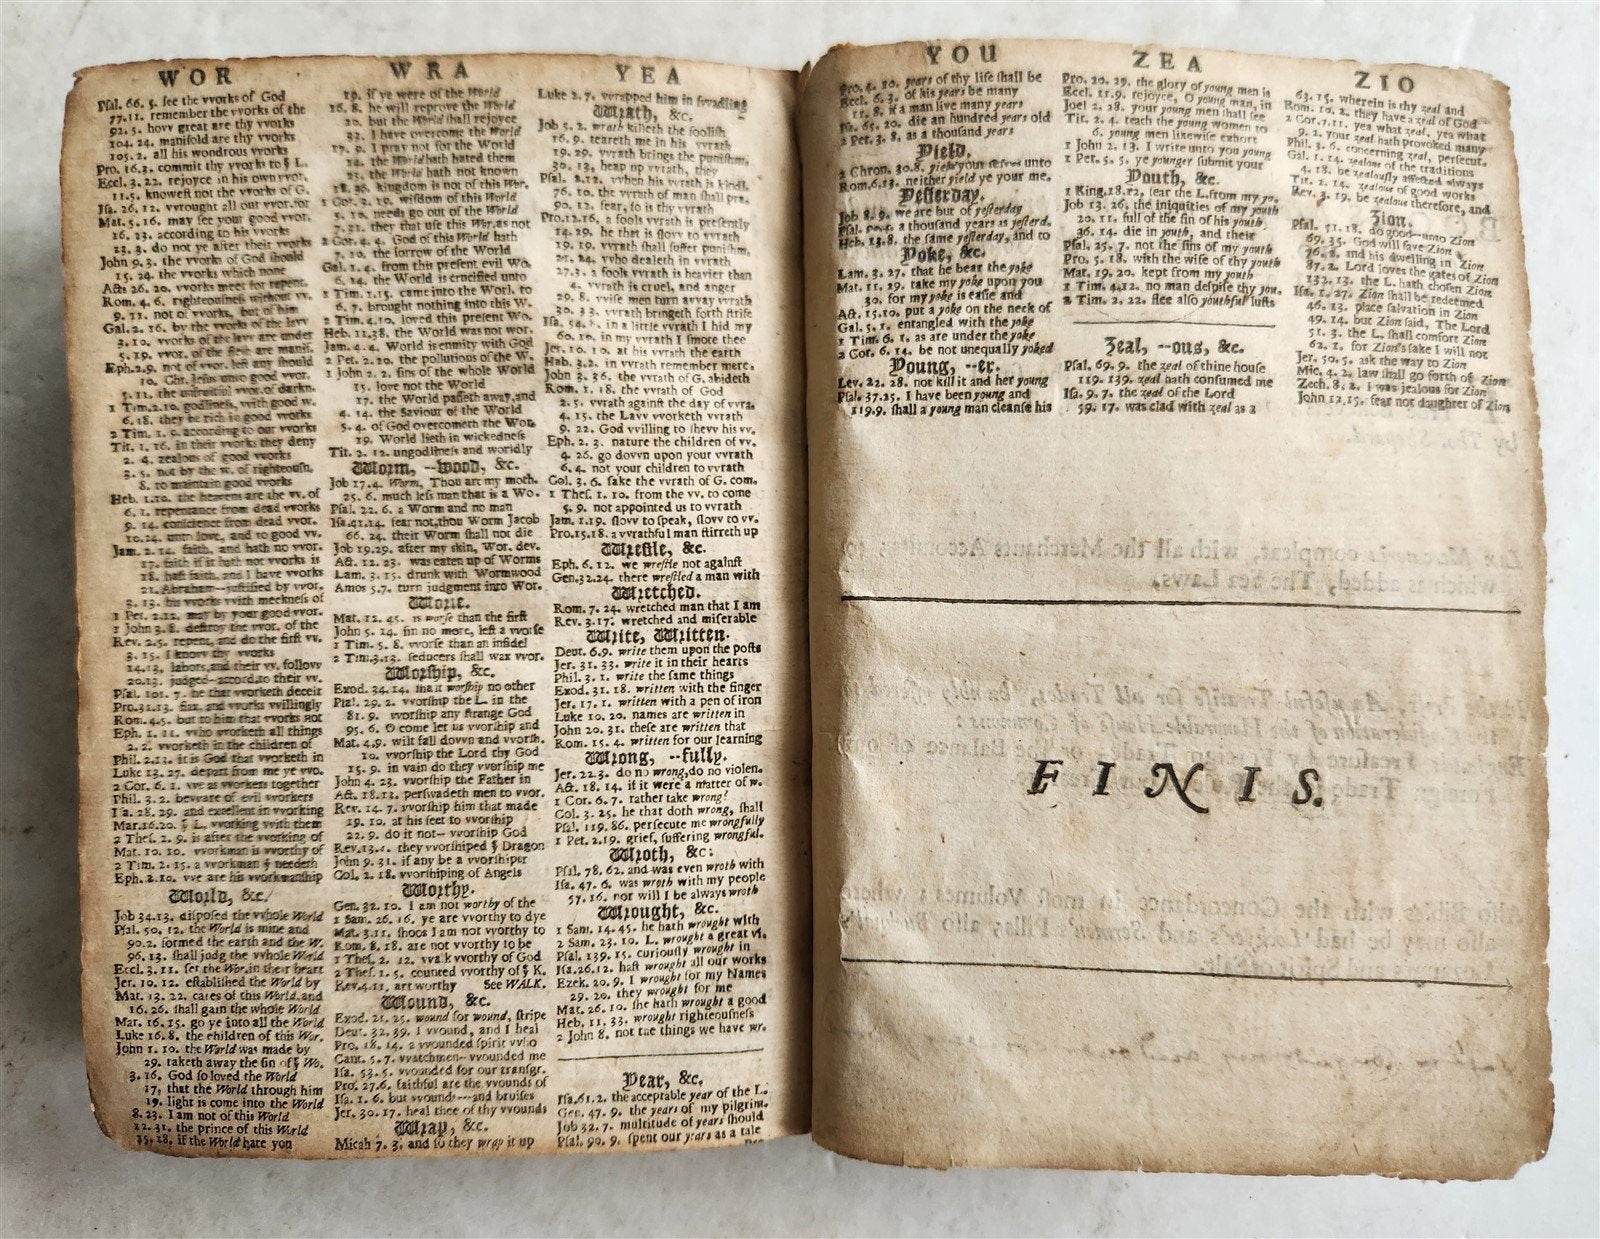 WOR
Psal. 66. 5. see the vvorks of God
77.11. remember the vvorks of the
92. 5. hovv great are thy vvorks
104. 24. manifold are thy vvorks
105. 2. all his wondrous vvorks
Pro. 16.3. commit thy vvorks to ye L.
Eccl. 3. 22. rejoyce in his ovvn vvor.
11.5. knowest not the vvorks of G.
Isa. 26. 12. vvrought all our vvor. for
Mat. 5. 16. may see your good vvor.
16. 23. according to his vvorks
23. 3. do not ye after their vvorks
John 9. 3. the vvorks of God should
15. 24. the vvorks which none
Acts 26. 20. vvorks meet for repent.
Rom. 4. 6. righteousness without vv.
9. 11. not of vvorks, but of him
Gal. 2. 16. by the vvorks of the lavv
3. 10. vvorks of the lavv are under
5. 19. vvor. of the flesh are manif.
Eph.2.9. not of vvor. lest any should
10. Chr. Jesus unto good vvor.
5. 11. the unfruitful vvor. of darkn.
1 Tim.2.10. godliness, with good w.
6. 18. they be rich in good vvorks
2 Tim. 1. 9. according to our vvorks
Tit. 1. 16. in their vvorks they deny
2. 4. zealous of good vvorks
3. 5. not by the w. of righteousn.
8. to maintain good vvorks
Heb. 1.10. the heavens are the vv. of
6. 1. repentance from dead vvorks
9. 14. conscience from dead vvor.
10.24. unto love, and to good vv.
Jam. 2. 14. faith, and hath no vvor.
17. faith if it hath not vvorks is
18. hast faith, and I have vvorks
21. Abraham--justified by vvor.
3. 13. his vvorks with meekness of
1 Pet. 2.12. may by your good vvor.
1 John 3. 8. destroy the vvor. of the
Rev. 2.5. repent, and do the first vv.
3. 15. I know thy vvorks
14.13. labors, and their vv. follovv
20.13. judged--accord. to their vv.
Psal. 101. 7. he that vvorketh deceit
Pro.31.13. flax, and vvorks vvillingly
Rom. 4.5. but to him that vvorks not
Eph. 1. 11. vvho vvorketh all things
2. 2. vvorketh in the children of
Phil. 2.13. it is God that vvorketh in
Luke 13. 27. depart from me ye vvo.
2 Cor. 6. 1. vve as vvorkers together
Phil. 3. 2. beware of evil vvorkers
Isa. 28. 29. and excellent in vvorking
Mar.16.20. ye L. vvorking vvith them
2 Thes. 2. 9. is after the vvorking of
Mat. 10. 10. vvorkman is vvorthy of
2 Tim. 2. 15. a vvorkman ye needeth
Eph. 2.10. vve are his vvorkmanship
World, &c.
Job 34.13. disposed the vvhole World
Psal. 50. 12. the World is mine and
90.2. formed the earth and the W.
96. 13. shall judg the vvhole World
Eccl. 3. 11. set the Wor. in their heart
Jer. 10. 12. established the World by
Mat. 13. 22. cares of this World, and
16. 26. shall gain the whole World
Mar. 16. 15. go ye into all the World
Luke 16. 8. the children of this Wor.
John 1. 10. the World was made by
29. taketh away the sin of ye Wo.
3. 16. God so loved the World
17. that the World through him
19. light is come into the World
8. 23. I am not of this World
12. 31. the prince of this World
15. 18. if the World hate you
WRA
19. if ye were of the World
16. 8. he will reprove the World
20. but the World shall rejoyce
33. I have overcome the World
17. 9. I pray not for the World
14. the World hath hated them
25. the World hath not known
18. 36. kingdom is not of this Wor.
1 Cor. 2. 10. wisdom of this World
5. 10. needs go out of the World
7. 31. they that use this Wor. as not
2 Cor. 4. 4. God of this World hath
7. 10. the sorrow of the World
Gal. 1. 4. from this present evil Wo.
6. 14. the World is crucified unto
1 Tim. 1.15. came into the Worl. to
6. 7. brought nothing into this W.
2 Tim. 4.10. loved this present Wo.
Heb. 11.38. the World was not wor.
Jam. 4.4. World is enmity with God
2 Pet. 2. 20. the pollutions of the W.
1 John 2. 2. sins of the whole World
15. love not the World
17. the World passeth away, and
4. 14. the Saviour of the World
5. 4. of God overcometh the Wor.
19. World lieth in wickedness
Tit. 2. 12. ungodliness and worldly
Worm, --wood, &c.
Job 17.4. Worm, Thou art my moth.
25. 6. much less man that is a Wo.
Psal. 22. 6. a Worm and no man
Isa.41.14. fear not, thou Worm Jacob
66. 24. their Worm shall not die
Job 19.29. after my skin, Wor. dev.
Act. 12. 23. was eaten up of Worms
Lam. 3. 15. drunk with Wormwood
Amos 5.7. turn judgment into Wor.
Worse.
Mat. 12. 45. is worse than the first
John 5. 14. sin no more, lest a vvorse
1 Tim. 5. 8. vvorse than an infidel
2 Tim.3.13. seducers shall wax vvor.
Worship, &c.
Exod. 34.14. shalt worship no other
Psal. 29. 2. vvorship the L. in the
81. 9. vvorship any strange God
95. 6. O come let us vvorship and
Mat. 4.9. wilt fall dovvn and vvorsh.
10. vvorship the Lord thy God
15. 9. in vain do they vvorship me
John 4. 23. vvorship the Father in
Act. 18.13. perswadeth men to vvor.
Rev. 14. 7. vvorship him that made
19. 10. at his feet to vvorship
22. 9. do it not-- vvorship God
Rev.13.4. they vvorshiped ye Dragon
John 9. 31. if any be a vvorshiper
Col. 2. 18. vvorshiping of Angels
Worthy.
Gen. 32. 10. I am not worthy of the
1 Sam. 26. 16. ye are vvorthy to dye
Mat. 3.11. shoos I am not vvorthy to
Rom. 8. 18. are not vvorthy to be
1 Thes. 2. 12. vvalk vvorthy of God
2 Thes. 1. 5. counted vvorthy of ye K.
Rev.4.11. art worthy See WALK.
Wound, &c.
Exod. 21. 25. wound for wound, stripe
Deut. 32. 39. I vvound, and I heal
Pro. 18. 14. a vvounded spirit vvho
Cant. 5. 7. vvatchmen--vvounded me
Isa. 53. 5. vvounded for our transgr.
Pro. 27.6. faithful are the vvounds of
Isa. 1. 6. but vvounds---and bruises
Jer. 30. 17. heal thee of thy vvounds
Wrap, &c.
Micah 7. 3. and so they wrap it up
YEA
Luke 2. 7. vvrapped him in svvadling
Wrath, &c.
Job 5. 2. wrath killeth the foolish
16. 9. teareth me in his vvrath
19. 29. vvrath brings the punishm.
30. 13. heap up vvrath, they
Psal. 2.12. vvhen his vvrath is kindl.
76. 10. the vvrath of man shall pra.
90. 12. fear, so is thy vvrath
Pro.12.16. a fools vvrath is presently
14. 29. he that is slovv to vvrath
19. 19. vvrath shall suffer punishm.
21. 24. vvho dealeth in vvrath
27. 3. a fools vvrath is heavier than
4. vvrath is cruel, and anger
29. 8. vvise men turn avvay vvrath
30. 33. vvrath bringeth forth strife
Isa. 54. 8. in a little vvrath I hid my
60. 10. in my vvrath I smote thee
Jer. 10. 10. at his vvrath the earth
Hab. 3.2. in vvrath remember merc.
John 3. 36. the vvrath of G. abideth
Rom. 1. 18. the vvrath of God
2. 5. vvrath against the day of vvra.
4. 15. the Lavv vvorketh vvrath
9. 22. God vvilling to shevv his vv.
Eph. 2. 3. nature the children of vv.
4. 26. go dovvn upon your vvrath
6. 4. not your children to vvrath
Col. 3. 6. sake the vvrath of G. com.
1 Thes. 1. 10. from the vv. to come
5. 9. not appointed us to vvrath
Jam. 1.19. slovv to speak, slovv to vv.
Pro.15.18. a vvrathful man stirreth up
Wrestle, &c.
Eph. 6. 12. we wrestle not against
Gen.32.24. there wrestled a man with
Wretched.
Rom. 7. 24. wretched man that I am
Rev. 3.17. wretched and miserable
Write, Written.
Deut. 6.9. write them upon the posts
Jer. 31. 33. write it in their hearts
Phil. 3. 1. write the same things
Exod. 31. 18. written with the finger
Jer. 17. 1. written with a pen of iron
Luke 10. 20. names are written in
John 20. 31. these are written that
Rom. 15. 4. written for our learning
Wrong, --fully.
Jer. 22.3. do no wrong, do no violen.
Act. 18. 14. if it were a matter of w.
1 Cor. 6. 7. rather take wrong?
Col. 3. 25. he that doth wrong, shall
Psal. 119. 86. persecute me wrongfully
1 Pet. 2.19. grief, suffering wrongful.
Wroth, &c.
Psal. 78. 62. and was even wroth with
Isa. 47. 6. was wroth with my people
57. 16. nor will I be always wroth
Wrought, &c.
1 Sam. 14. 45. he hath wrought with
2 Sam. 23. 10. L. wrought a great vi.
Psal. 139. 15. curiously wrought in
Isa.26.12. hast wrought all our works
Ezek. 20. 9. I wrought for my Names
29. 20. they wrought for me
Mat. 26. 10. she hath wrought a good
Heb. 11. 33. wrought righteousness
2 John 8. not the things we have wr.
Year, &c.
Isa.61.2. the acceptable year of the L.
Gen. 47. 9. the years of my pilgrim.
Job 32. 7. multitude of years should
Psal. 90. 9. spent our years as a tale
Pro.
YOU
Pro. 4. 10. years of thy life shall be
Eccl. 6. 3. of his years be many
11. 8. if a man live many years
Isa. 65. 20. die an hundred years old
2 Pet. 3. 8. as a thousand years
Yield.
2 Chron. 30.8. yield your selves unto
Rom.6.13. neither yield ye your me.
Yesterday.
Job 8. 9. we are but of yesterday
Psal. 90.4. a thousand years as yesterd.
Heb. 13.8. the same yesterday, and to
Yoke, &c.
Lam. 3. 27. that he bear the yoke
Mat. 11. 29. take my yoke upon you
30. for my yoke is easie and
Act. 15.10. put a yoke on the neck of
Gal. 5. 1. entangled with the yoke
1 Tim. 6. 1. as are under the yoke
2 Cor. 6. 14. be not unequally yoked
Young, --er.
Lev. 22. 28. not kill it and her young
Psal. 37.25. I have been young and
119.9. shall a young man cleanse his
ZEA
Pro. 20. 29. the glory of young men is
Eccl. 11.9. rejoyce, O young man, in
Joel 2. 28. your young men shall see
Tit. 2. 4. teach the young women to
6. young men likewise exhort
1 John 2. 13. I write unto you young
1 Pet. 5. 5. ye younger submit your
Youth, &c.
1 King.18.12. fear the L. from my yo.
Job 13. 26. the iniquities of my youth
20. 11. full of the sin of his youth
36. 14. die in youth, and their
Psal. 25. 7. not the sins of my youth
Pro. 5. 18. with the wife of thy youth
Mat. 19. 20. kept from my youth
1 Tim. 4.12. no man despise thy you.
2 Tim. 2. 22. flee also youthful lusts
Zeal, --ous, &c.
Psal. 69. 9. the zeal of thine house
119. 139. zeal hath consumed me
Isa. 9. 7. the zeal of the Lord
59. 17. was clad with zeal as a
ZIO
63. 15. wherein is thy zeal and
Rom. 10. 2. they have a zeal of God
2 Cor.7.11. yea what zeal, yea what
9. 2. your zeal hath provoked many
Phil. 3. 6. concerning zeal, persecut.
Gal. 1. 14. zealous of the traditions
4. 18. be zealously affected always
Tit. 2. 14. zealous of good works
Rev. 3. 19. be zealous therefore, and
Zion.
Psal. 51.18. do good--unto Zion
69. 35. God will save Zion
76. 2. and his dwelling in Zion
87. 2. Lord loves the gates of Zion
132. 13. the L. hath chosen Zion
Isa. 1. 27. Zion shall be redeemed
46. 13. place salvation in Zion
49. 14. but Zion said, The Lord
51. 3. the L. shall comfort Zion
62. 1. for Zion's sake I will not
Jer. 50. 5. ask the way to Zion
Mic. 4. 2. law shall go forth of Zion
Zech. 8. 2. I was jealous for Zion
John 12.15. fear not daughter of Zion
FINIS.